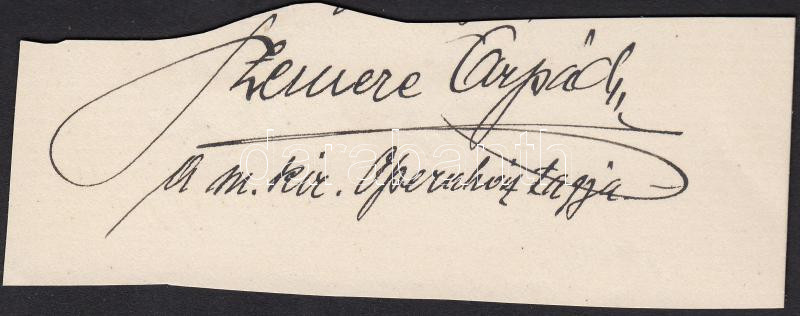 Szemere Árpád
a m. kir. Operaház tagja
darabanth